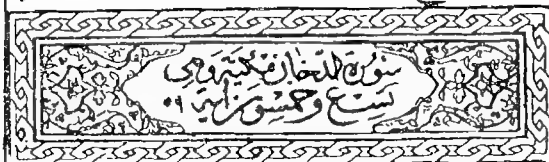 سورة الدخان مكية وهي
تسع وخمسون آية ٥٩